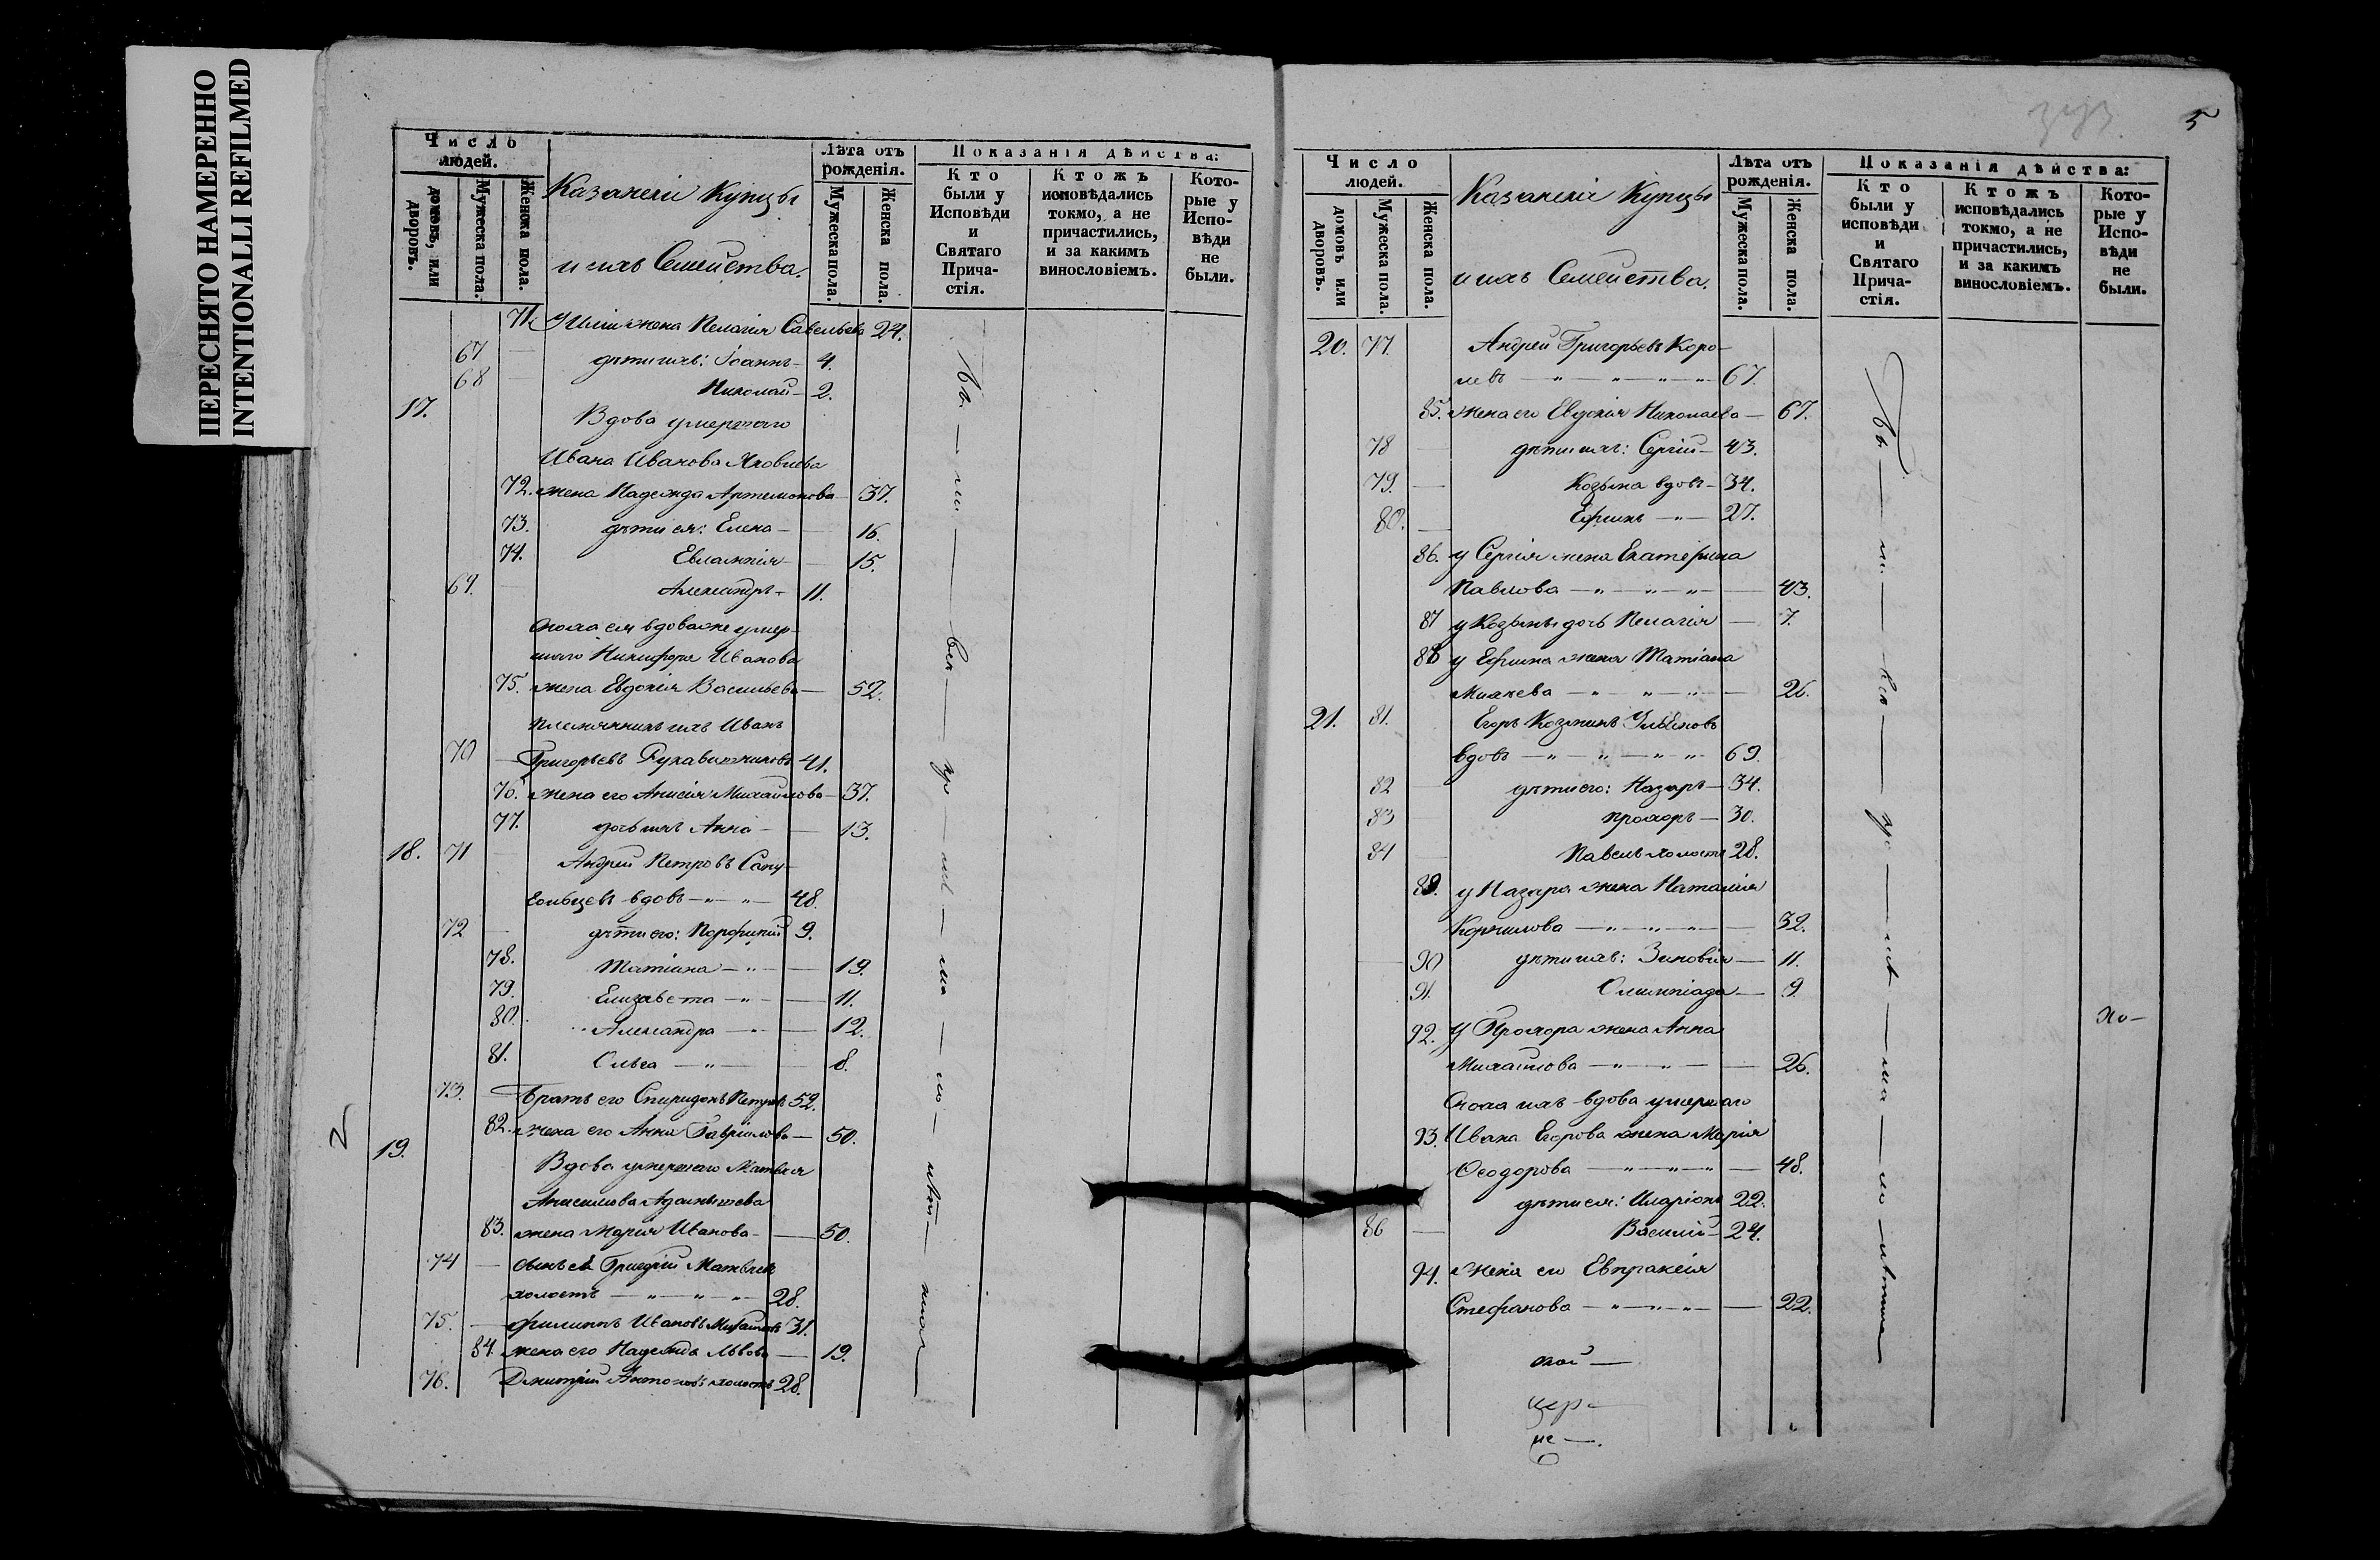 ПЕРЕСНЯТО НАМЕРЕННО
INTENTIONALLI REFILMED
Число людей.
домовъ, или дворовъ.
Мужеска пола.
Женска пола.
Казанскіи Купцы
и ихъ Семейства.
Лѣта отъ рожденія.
Мужеска пола.
Женска пола.
Показанія дѣйства:
Кто были у Исповѣди и Святаго Прича-стія.
Ктожъ исповѣдались токмо, а не причастились, и за какимъ винословіемъ.
Кото-рые у Испо-вѣди не были.
71. У Иліи жена Пелагія Савельева 24.
67 дѣти ихъ: Іоаннъ 4.
68 Николай 2.
17. Вдова умершаго
Ивана Иванова Яковлева
72. жена Надежда Артемонова 37.
73. дѣти ея: Елена 16.
74. Евлампія 15.
69. Александръ 11.
Сноха ея вдова же умер-
шаго Никифора Иванова
75. жена Евдокія Васильева 52.
племянникъ ихъ Иванъ
70 Григорьевъ Рукавишниковъ 41.
76. жена его Анисія Михайлова 37.
77. дочь ихъ Анна 13.
18. 71 Андрей Петровъ Сапу-
гольцевъ вдовъ 48.
72 дѣти его: Порфирій 9.
78. Матіана 19.
79. Елизавета 11.
80. Александра 12.
81. Ольга 8.
73. Братъ его Спиридонъ Петровъ 52.
82. жена его Анна Гавріилова 50.
19. Вдова умершаго Матвея
83. жена Марія Иванова 50.
74 сынъ ея Григорій Матвеевъ
холостъ 28.
75. Филиппъ Ивановъ Михайловъ 31.
84. жена его Надежда Львова 19.
76. Дмитрій Антоновъ холостъ 28.
5
Число людей.
домовъ или дворовъ.
Мужеска пола.
Женска пола.
Казанскіе Купцы
и ихъ Семейства.
Лѣта отъ рожденія.
Мужеска пола.
Женска пола.
Показанія дѣйства:
Кто были у исповѣди и Святаго Прича-стія.
Ктожъ исповѣдались токмо, а не причастились, и за какимъ винословіемъ.
Кото-рые у Испо-вѣди не были.
20. 77. Андрей Григорьевъ Коро-
левъ 67.
85. жена его Евдокія Николаева 67.
78 дѣти ихъ: Сергій 43.
79. Козьма вдовъ 34.
80. Ефимъ 27.
86. у Сергія жена Екатерина
Павлова 43.
87 у Козьмы дочь Пелагія 7.
88 у Ефима жена Татіана
Михеева 26.
21. 81. Егоръ Козминъ
вдовъ 69.
82 дѣти его: Назаръ 34.
83 Прохоръ 30.
84 Павелъ холостъ 28.
89. у Назара жена Наталія
Корнилова 32.
90 дѣти ихъ: Зиновія 11.
91. Олимпіада 9.
92. У Прохора жена Анна
Михайлова 26.
Сноха ихъ вдова умершаго
93. Ивана Егорова жена Марія
Ѳеодорова 48.
дѣти ея: Иларіонъ 22.
86 Василій 24.
94. жена его Евпраксія
Стефанова 22.
ской
цер